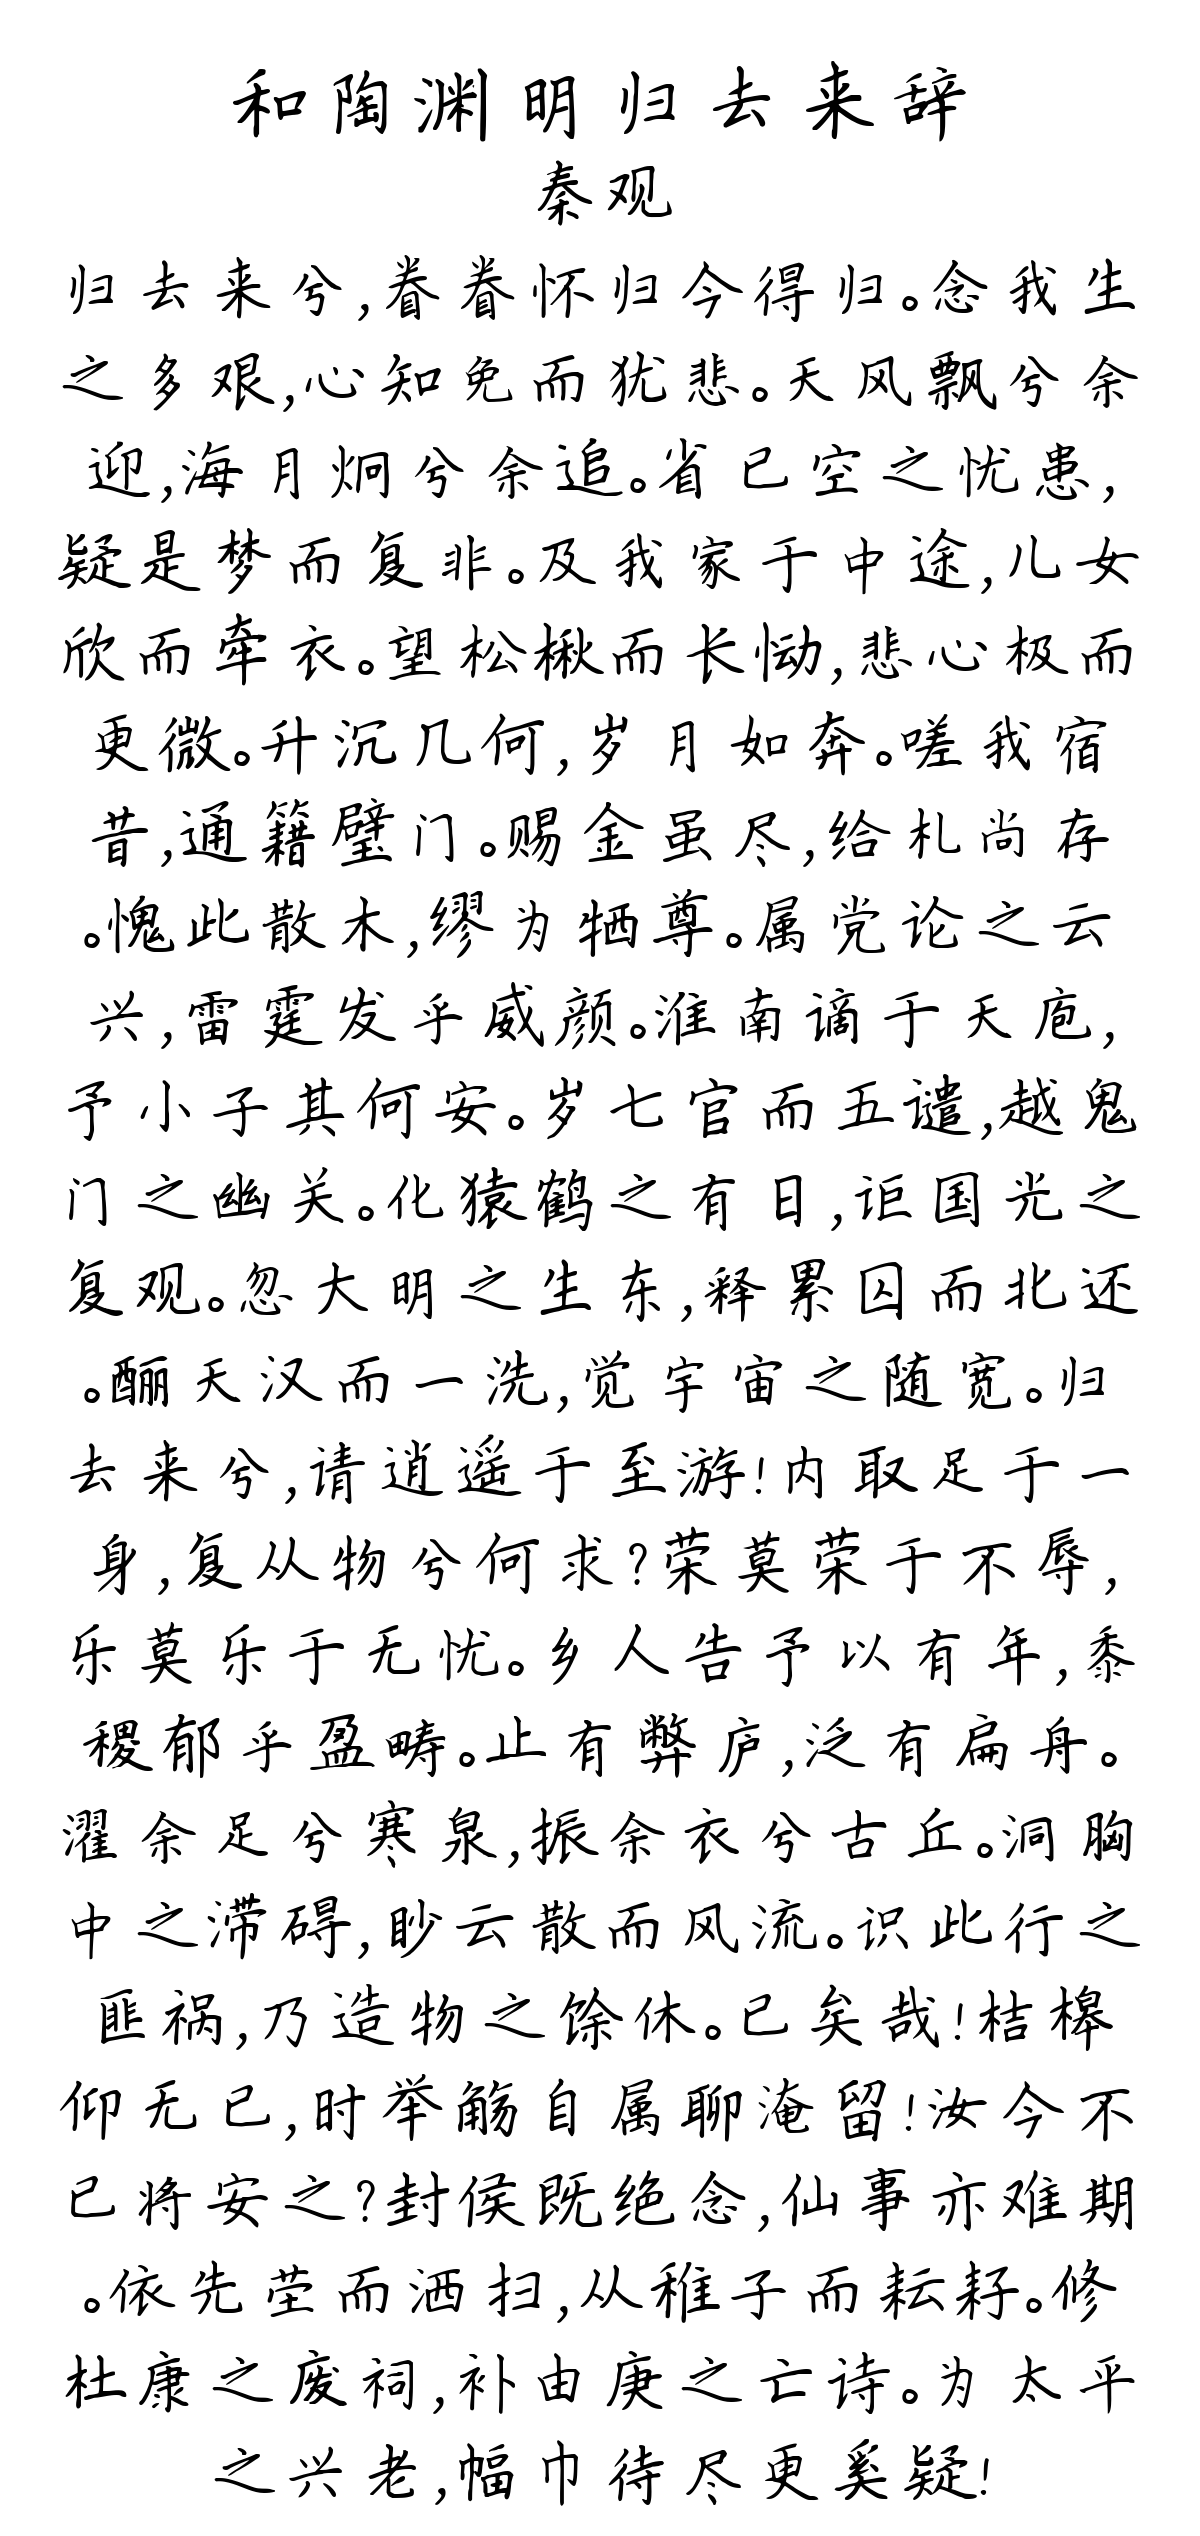 和陶渊明归去来辞
秦观
归去来兮,眷眷怀归今得归。念我生
之多艰,心知免而犹悲。天风飘兮余
迎,海月炯兮余追。省已空之忧患,
疑是梦而复非。及我家于中途,儿女
欣而牵衣。望松楸而长恸,悲心极而
更微。升沉几何,岁月如奔。嗟我宿
昔,通籍璧门。赐金虽尽,给札尚存
。愧此散木,缪为牺尊。属党论之云
兴,雷霆发乎威颜。淮南谪于天庖,
予小子其何安。岁七官而五谴,越鬼
门之幽关。化猿鹤之有日,讵国光之
复观。忽大明之生东,释累囚而北还
。酾天汉而一洗,觉宇宙之随宽。归
去来兮,请逍遥于至游!内取足于一
身,复从物兮何求?荣莫荣于不辱,
乐莫乐于无忧。乡人告予以有年,黍
稷郁乎盈畴。止有弊庐,泛有扁舟。
濯余足兮寒泉,振余衣兮古丘。洞胸
中之滞碍,眇云散而风流。识此行之
匪祸,乃造物之馀休。已矣哉!桔槔
仰无已,时举觞自属聊淹留!汝今不
已将安之?封侯既绝念,仙事亦难期
。依先茔而洒扫,从稚子而耘耔。修
杜康之废祠,补由庚之亡诗。为太平
之兴老,幅巾待尽更奚疑!